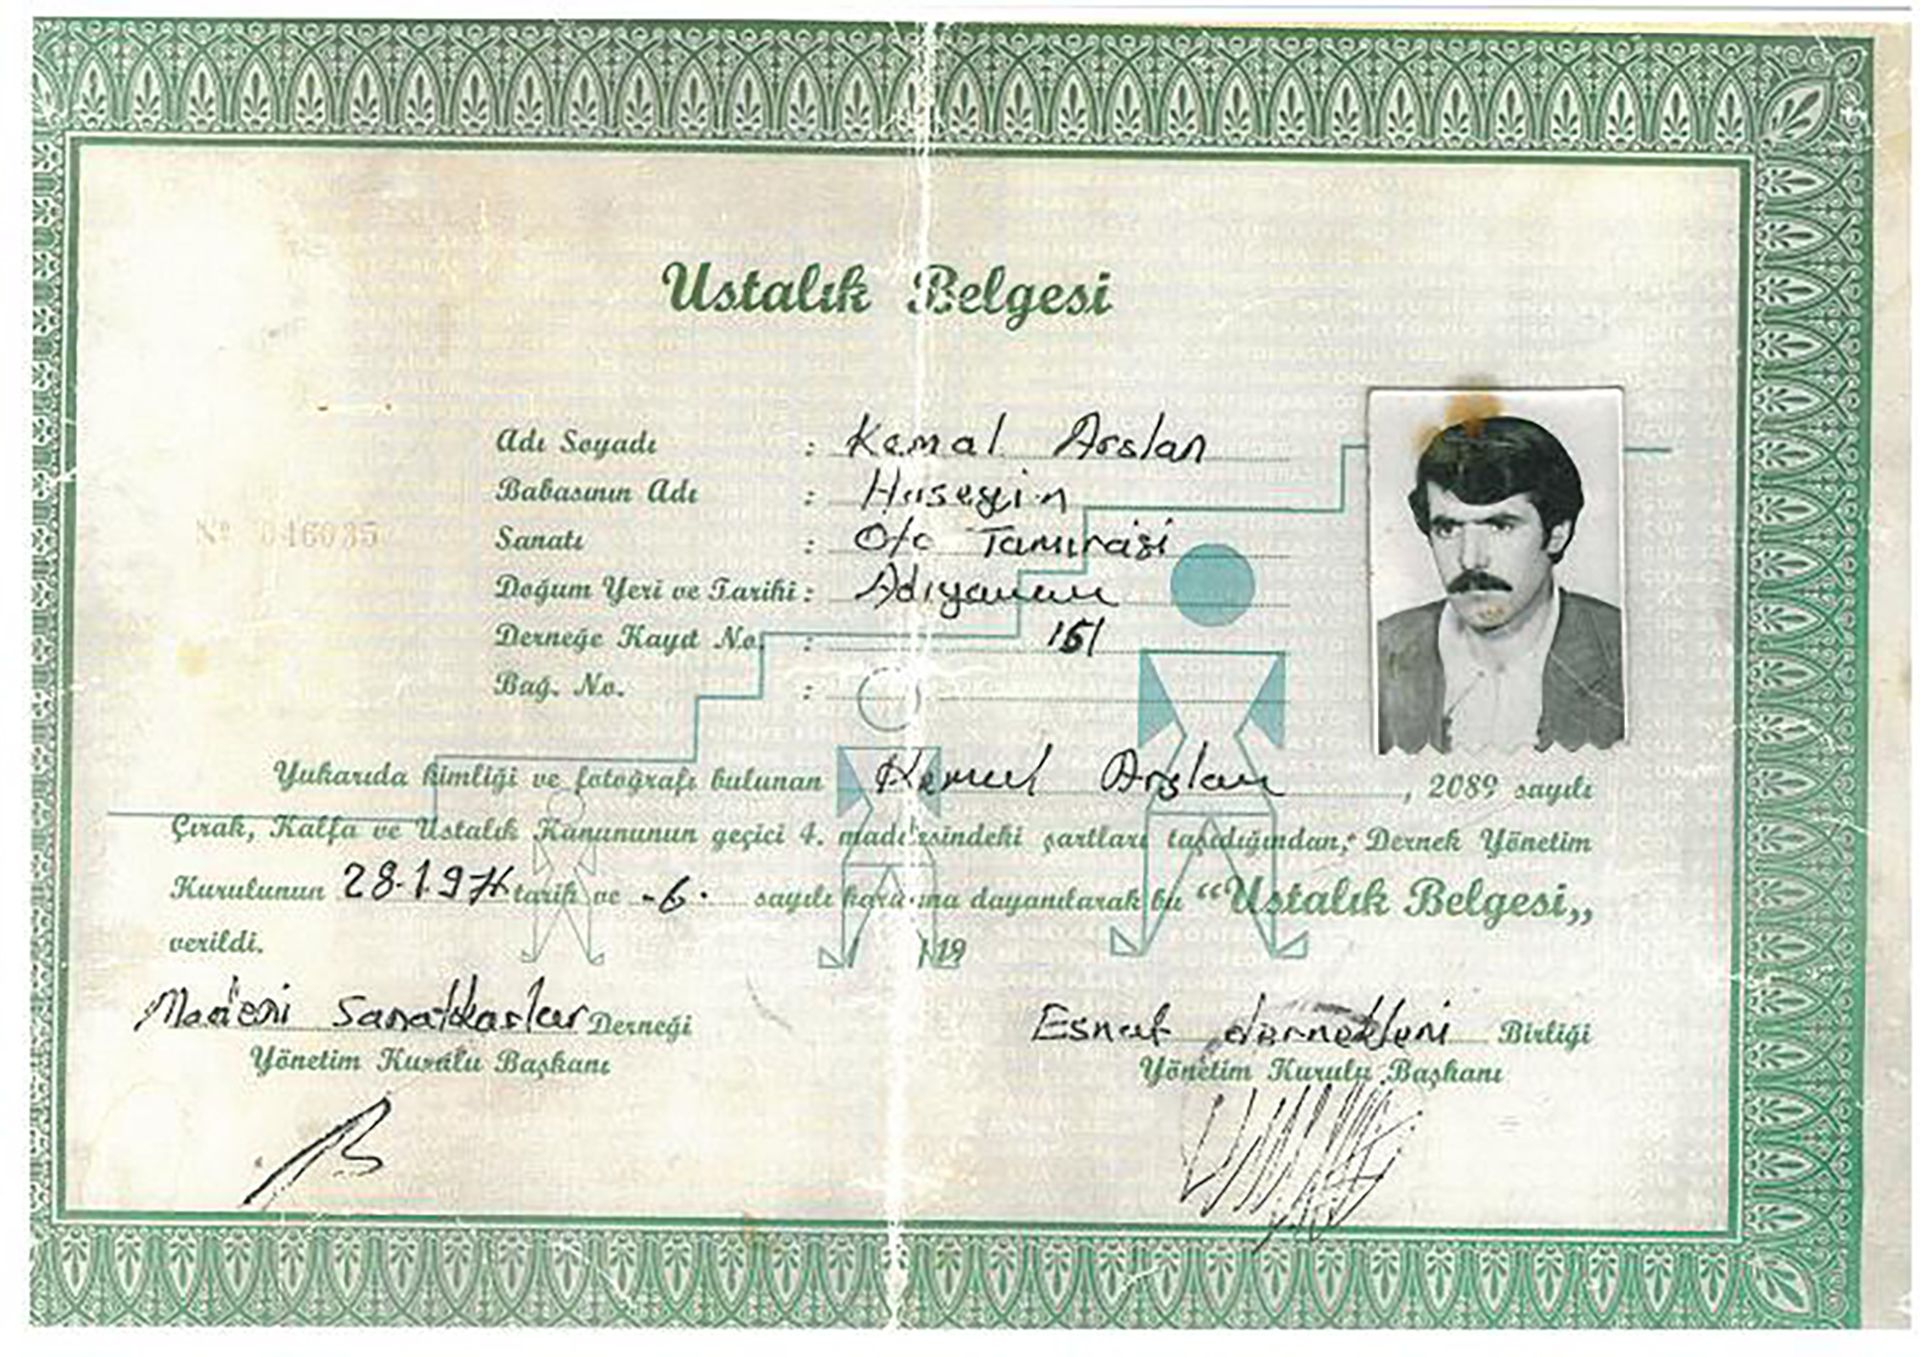 Ustalık Belgesi
Adı Soyadı : Kemal Arslan
Babasının Adı : Hüseyin
Sanatı : Oto Tamiraisi
Doğum Yeri ve Tarihi : Adıyaman
Derneğe Kayıt No. : 151
Nº 046035
Bağ. No. :
Yukarıda kimliği ve fotoğrafı bulunan Kemal Arslan, 2089 sayılı
Çırak, Kalfa ve Ustalık Kanununun geçici 4. maddesindeki şartları taşıdığından, Dernek Yönetim
Kurulunun 28.1.97 tarih ve -6- sayılı kararına dayanılarak bu “Ustalık Belgesi„
verildi. / /19
Madeni Sanatkarlar Derneği
Yönetim Kurulu Başkanı
Esnaf dernekleri Birliği
Yönetim Kurulu Başkanı